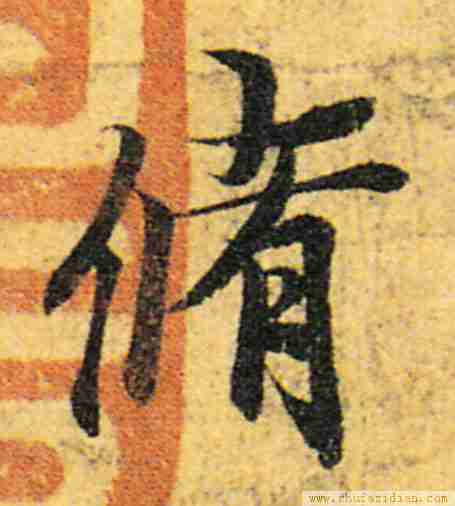 脩
www.shufazidian.com